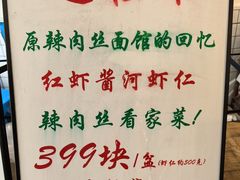 原辣肉丝面馆的回忆
红虾酱河虾仁
辣肉丝看家菜!
399块/盆(虾仁约500克)